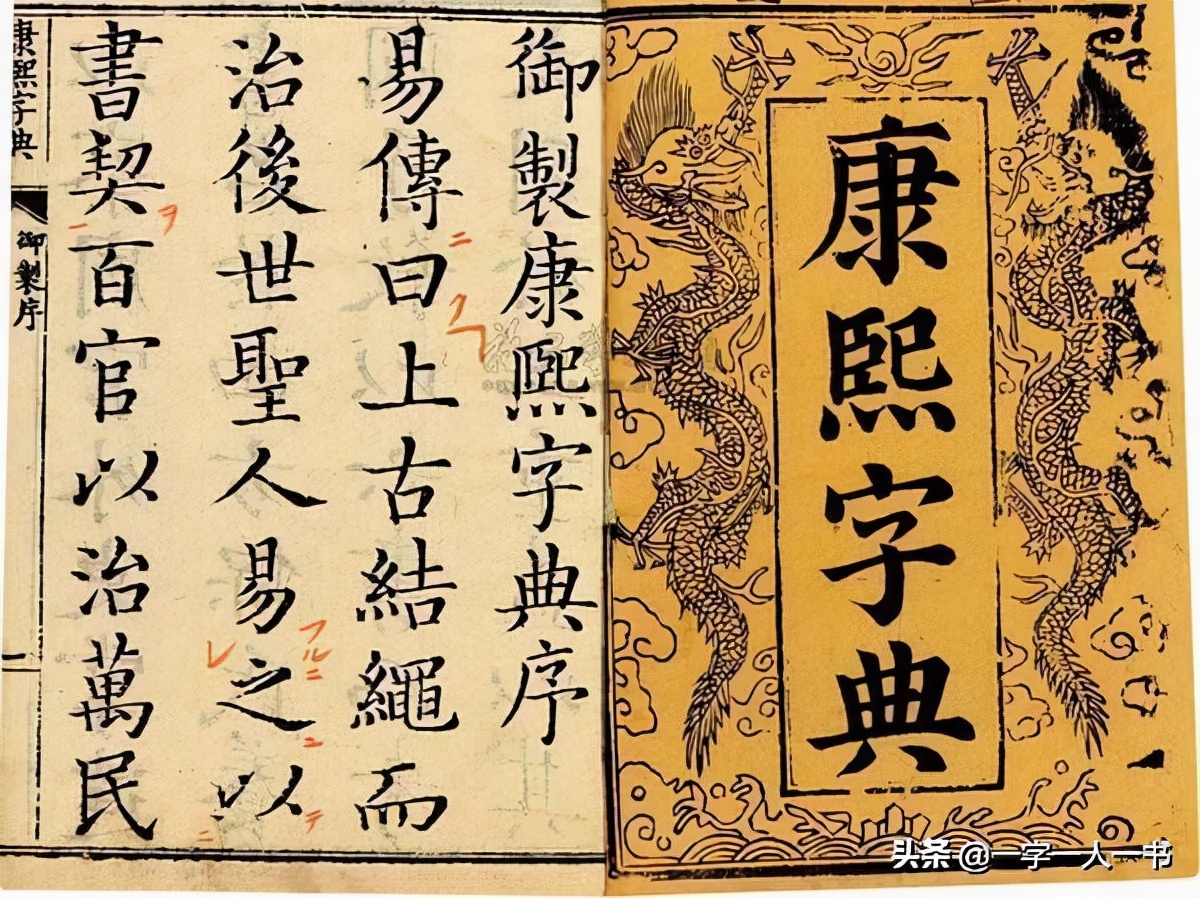 康熙字典
御製康熙字典序
易傳曰上古結繩而
治後世聖人易之以
書契百官以治萬民
康熙字典
御製序
一
ニ
ク
レ
フルニ
ニ
ニ
テ
一
ヲ
头条 @一字一人一书